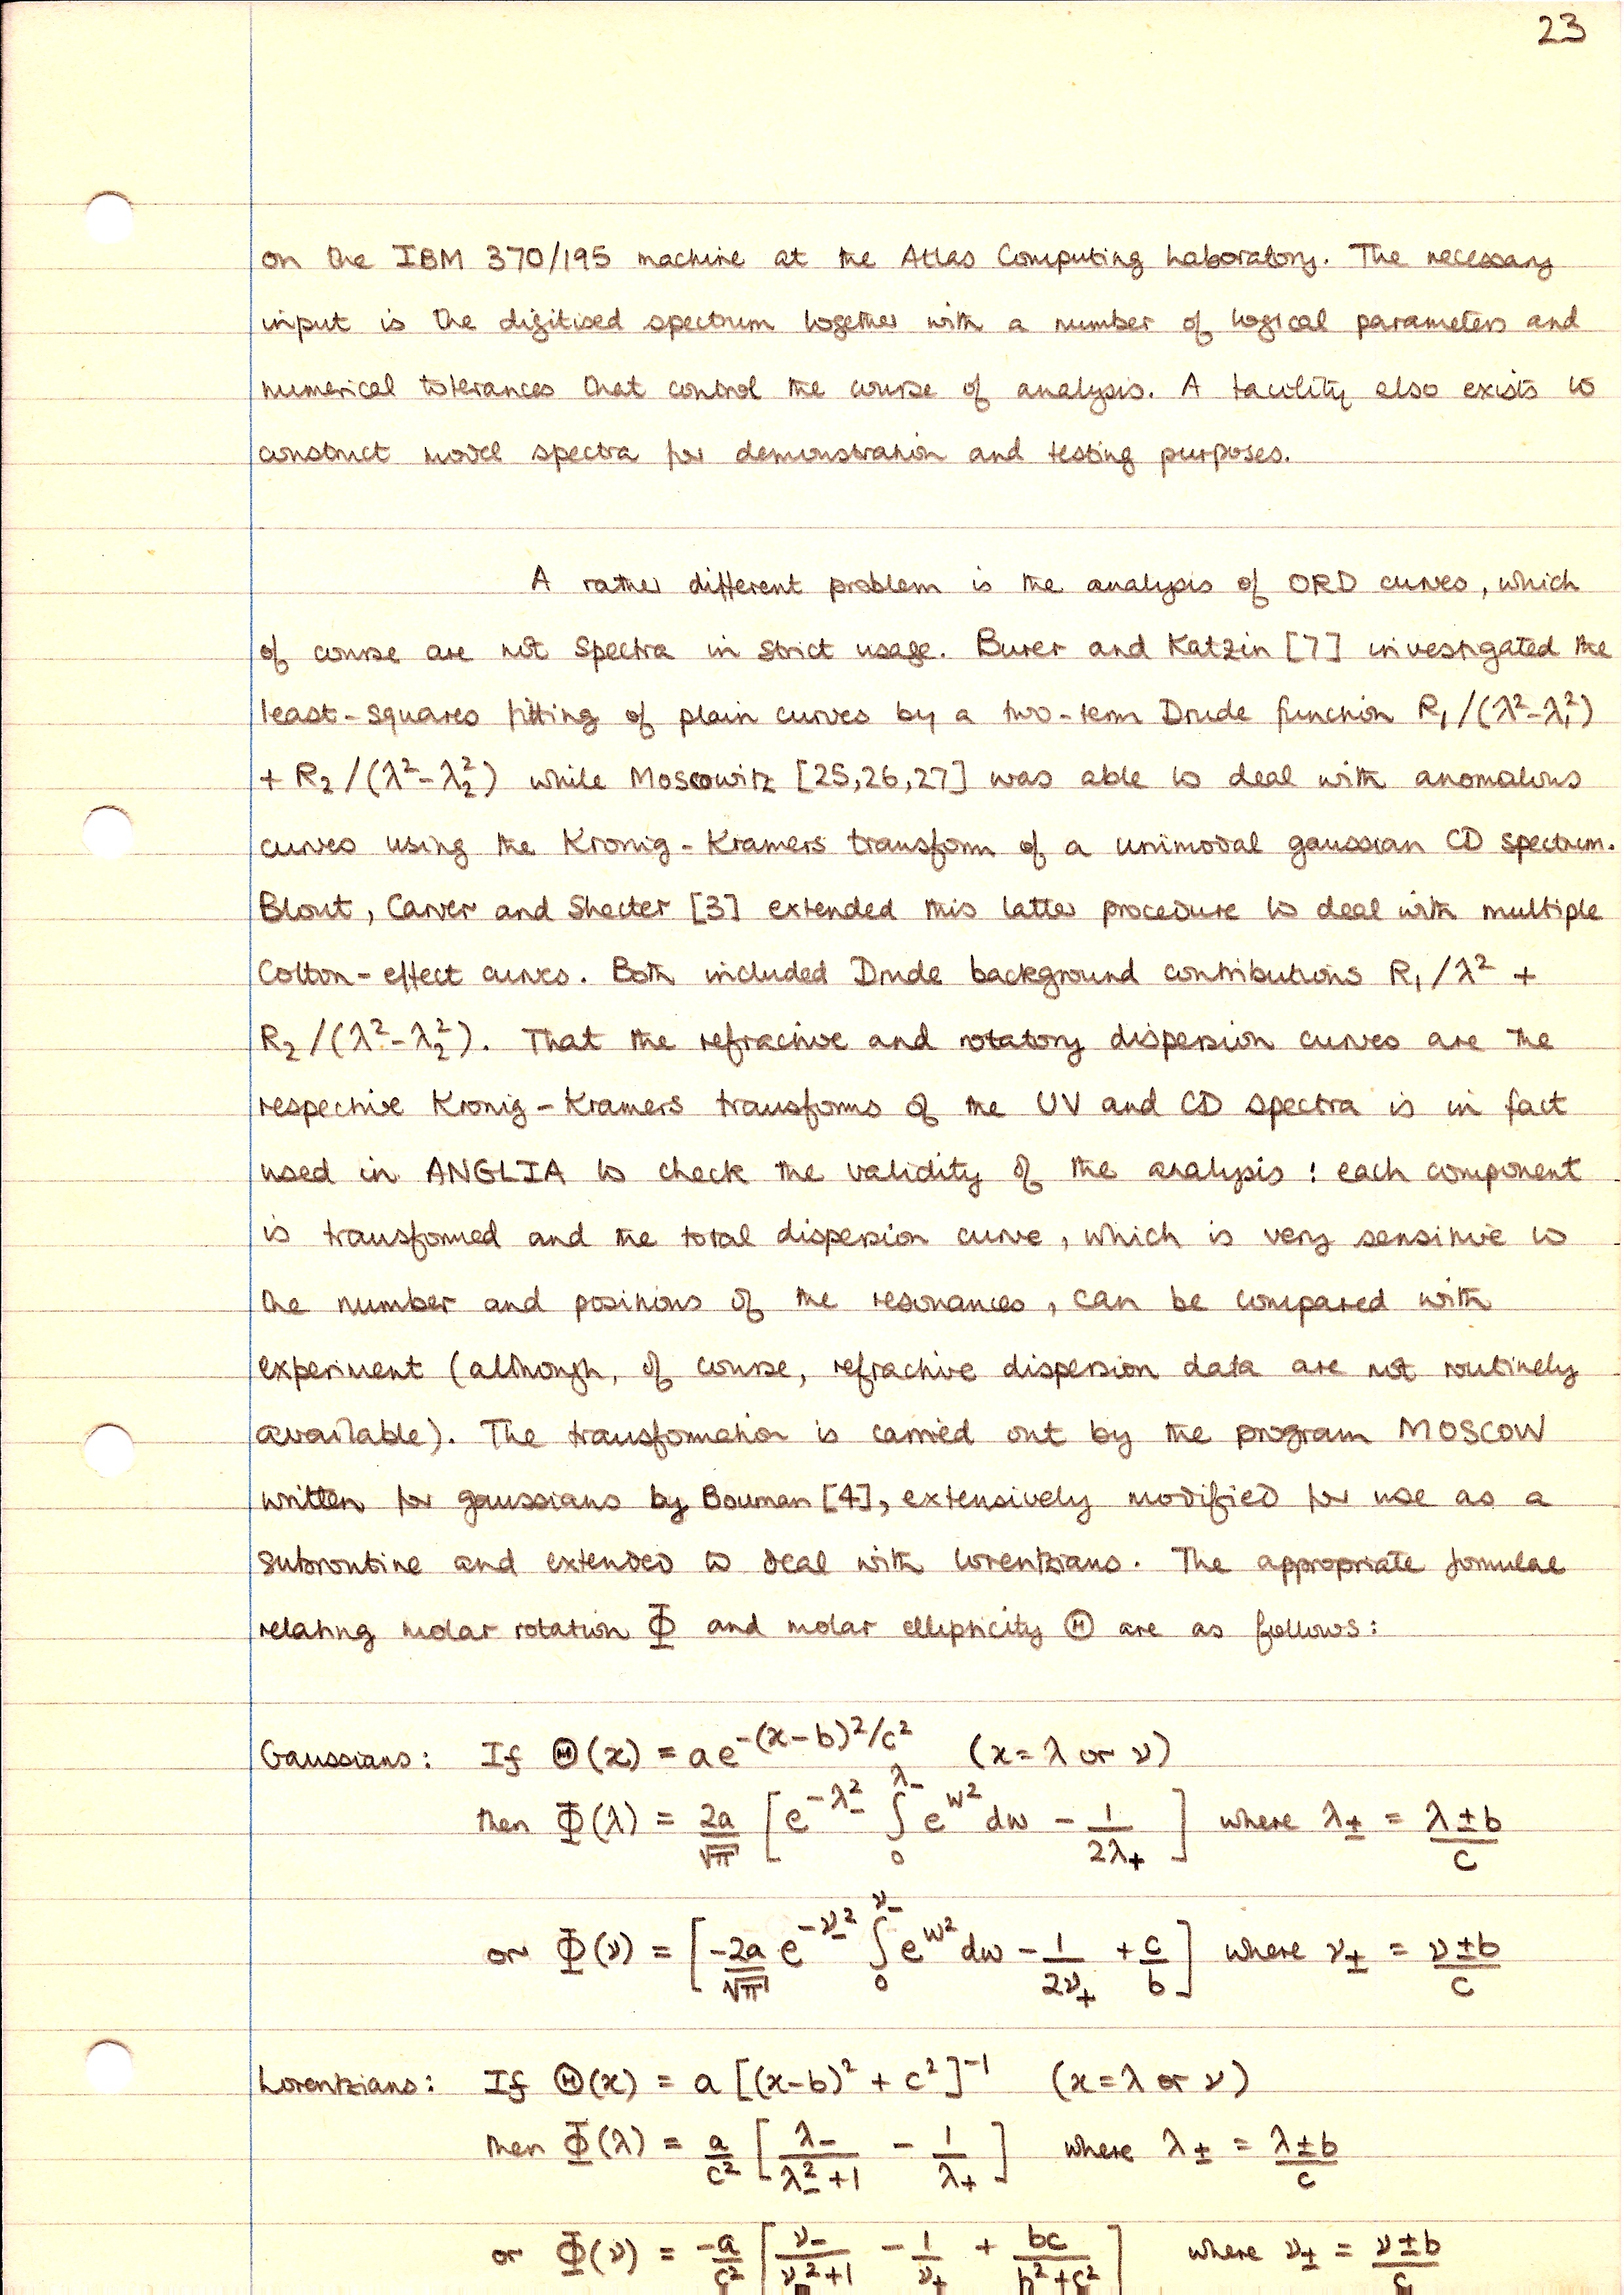 23
on the IBM 370/195 machine at the Atlas Computing Laboratory. The necessary
input is the digitised spectrum together with a number of logical parameters and
numerical tolerances that control the course of analysis. A facility also exists to
construct model spectra for demonstration and testing purposes.
A rather different problem is the analysis of ORD curves, which
of course are not spectra in strict usage. Burer and Katzin [7] investigated the
least-squares fitting of plain curves by a two-term Drude function R₁/(λ²-λ₁²)
+ R₂/(λ²-λ₂²) while Moscowitz [25,26,27] was able to deal with anomalous
curves using the Kronig-Kramers transform of a unimodal gaussian CD spectrum.
Blout, Carver and Shecter [3] extended this latter procedure to deal with multiple
Cotton-effect curves. Both included Drude background contributions R₁/λ² +
R₂/(λ²-λ₂²). That the refractive and rotatory dispersion curves are the
respective Kronig-Kramers transforms of the UV and CD spectra is in fact
used in ANGLIA to check the validity of the analysis: each component
is transformed and the total dispersion curve, which is very sensitive to
the number and positions of the resonances, can be compared with
experiment (although, of course, refractive dispersion data are not routinely
available). The transformation is carried out by the program MOSCOW
written for gaussians by Bouman [4], extensively modified for use as a
subroutine and extended to deal with lorentzians. The appropriate formulae
relating molar rotation Φ and molar ellipticity Θ are as follows:
Gaussians: If Θ(x) = ae^-(x-b)²/c² (x = λ or ν)
then Φ(λ) = 2a/√π [e^-λ₋² ∫₀^λ₋ e^w² dw - 1/2λ₊] where λ± = (λ±b)/c
or Φ(ν) = [-2a/√π e^-ν₋² ∫₀^ν₋ e^w² dw - 1/2ν₊ + c/b] where ν± = (ν±b)/c
Lorentzians: If Θ(x) = a[(x-b)² + c²]⁻¹ (x = λ or ν)
then Φ(λ) = a/c² [λ₋/(λ₋²+1) - 1/λ₊] where λ± = (λ±b)/c
or Φ(ν) = -a/c² [ν₋/(ν₋²+1) - 1/ν₊ + bc/(b²+c²)] where ν± = (ν±b)/c